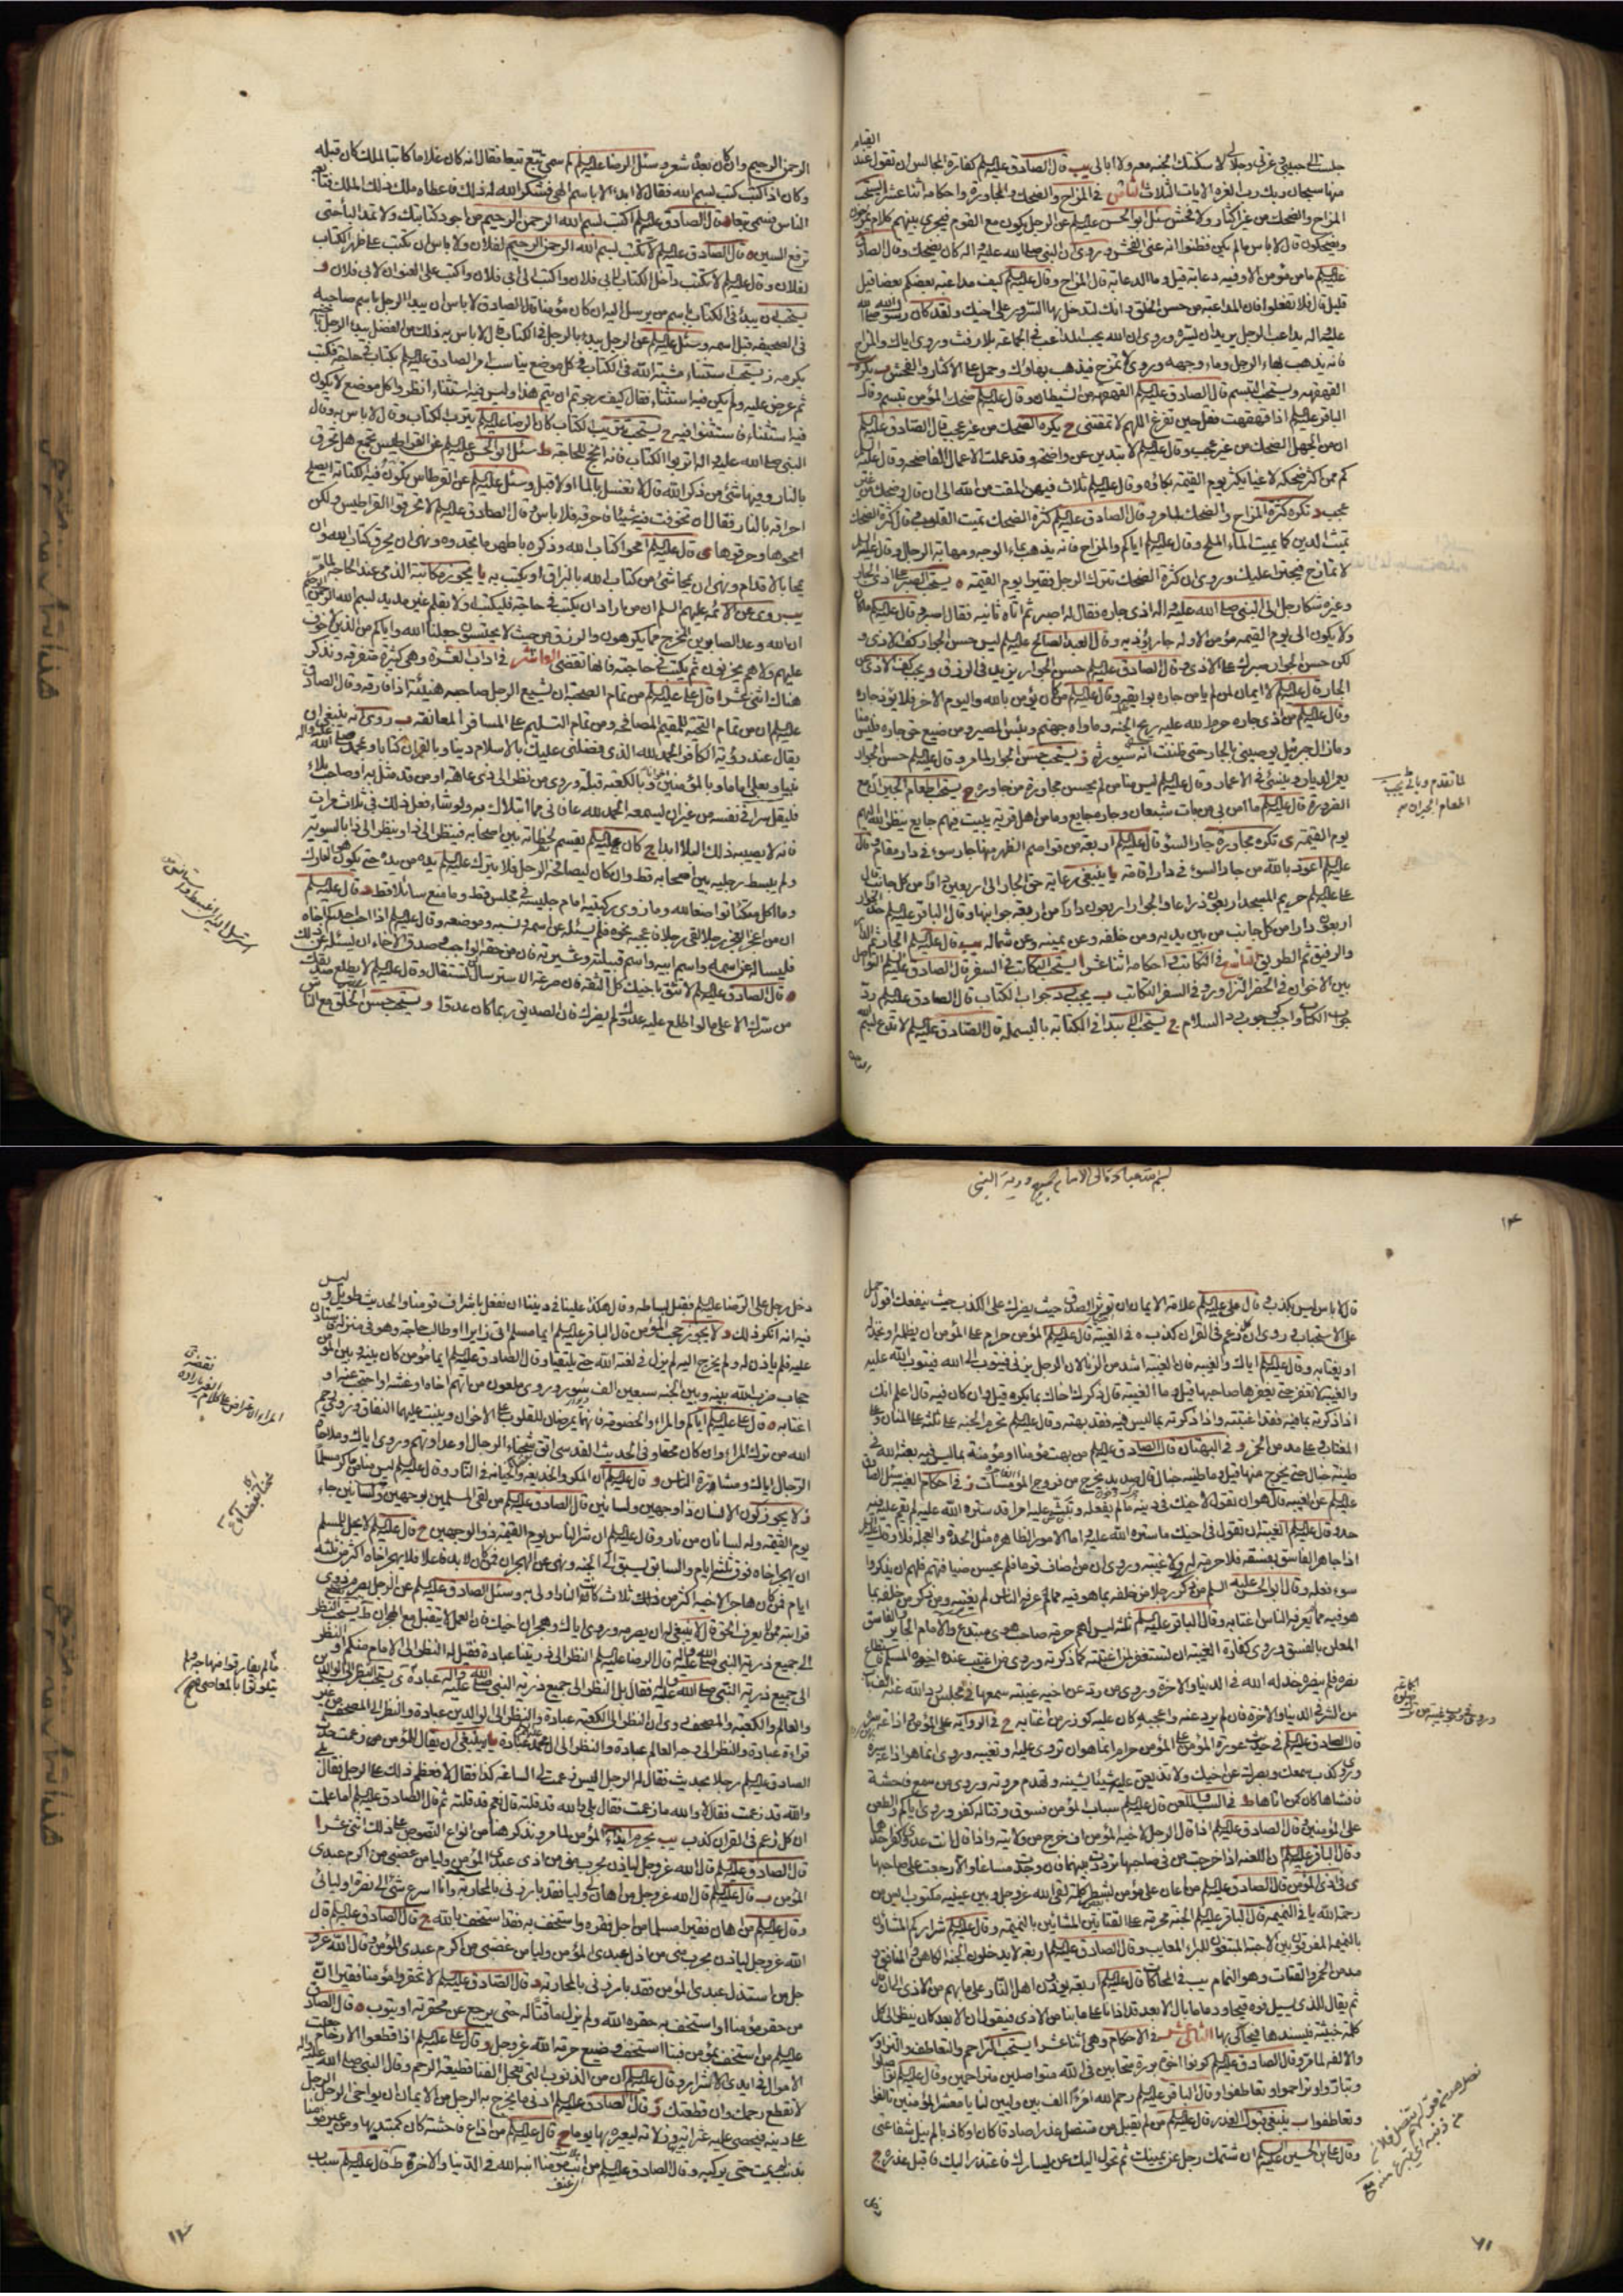 القيام
جلست الى حبيبي وعزتي وجلالي لاسكنتك الجنة معه ولا ابالي يب قال الصادق عليه السلم كفارة المجالس ان تقول عند
سبحان ربك رب العزة الايات الثلاث الثامن في المزاح والضحك والمجاورة واحكامه اثنا عشر ا يستحب
المزاح والضحك من غير اكثار ولا فحش سئل ابو الحسن عليه السلم عن الرجل يكون مع القوم فيجري بينهم كلام يمزحون
ويضحكون قال لا باس ما لم يكن فظننا انه عنى الفحش وروي ان النبي صلى الله عليه واله كان يضحك وقال الصادق
عليه السلم ما من مؤمن الا وفيه دعابة قيل وما الدعابة قال المزاح وقال عليه السلم كيف مداعبة بعضكم بعضا قيل
قليل قال فلا تفعلوا فان المداعبة من حسن الخلق وانك لتدخل بها السرور على اخيك ولقد كان رسول الله صلى الله
عليه واله يداعب الرجل يريد ان يسره وروي ان الله يحب المداعب في الجماعة بلا رفث وروي اياك والمزاح
فانه يذهب بماء الرجل وماء وجهه وروي لا تمزح فيذهب بهاؤك وحمل على الاكثار والفحش ب يكره
القهقهة ويستحب التبسم قال الصادق عليه السلم القهقهة من الشيطان وقال عليه السلم ضحك المؤمن تبسم وقال
الباقر عليه السلم اذا قهقهت فقل حين تفرغ اللهم لا تمقتني ج يكره الضحك من غير عجب قال الصادق عليه السلم
ان من الجهل الضحك من غير عجب وقال عليه السلم لا تبدين عن واضحة وقد عملت الاعمال الفاضحة وقال عليه السلم
كم ممن كثر ضحكه لاغيا يكثر يوم القيمة بكاؤه وقال عليه السلم ثلاث فيهن المقت من الله الى ان قال وضحك من غير
عجب د تكره كثرة المزاح والضحك لما مر وقال الصادق عليه السلم كثرة الضحك تميت القلب وقال كثرة الضحك
تميث الدين كما يميث الماء الملح وقال عليه السلم اياكم والمزاح فانه يذهب بماء الوجه ومهابة الرجال وقال عليه السلم
لا تمازح فيجترأ عليك وروي ان كثرة الضحك تترك الرجل فقيرا يوم القيمة ه يستحب الصبر على اذى الجار
وغيره شكا رجل الى النبي صلى الله عليه واله اذى جاره فقال له اصبر ثم اتاه ثانية فقال اصبر وقال عليه السلم ما كان
ولا يكون الى يوم القيمة مؤمن الا وله جار يؤذيه وقال العبد الصالح عليه السلم ليس حسن الجوار كف الاذى و
لكن حسن الجوار صبرك على الاذى وقال الصادق عليه السلم حسن الجوار يزيد في الرزق و يجب كف الاذى عن
الجار قال عليه السلم لا ايمان لمن لم يامن جاره بوايقه وقال عليه السلم من كان يؤمن بالله واليوم الاخر فلا يؤذ جاره
وقال عليه السلم من اذى جاره حرم الله عليه ريح الجنة وماواه جهنم وبئس المصير ومن ضيع حق جاره فليس منا
وما زال جبرئيل يوصيني بالجار حتى ظننت انه سيورثه ز يستحب حسن الجوار لما مر وقال عليه السلم حسن الجوار
يعمر الديار وينسئ في الاعمار وقال عليه السلم ليس منا من لم يحسن مجاورة من جاوره ح يستحب اطعام الجيران مع
الضرورة قال عليه السلم ما امن بي من بات شبعان وجاره جايع وما من اهل قرية يبيت فيهم جايع ينظر الله اليهم
يوم القيمة ط تكره مجاورة جار السوء قال عليه السلم اربعة من قواصم الظهر منها جار سوء في دار مقام وقال
عليه السلم اعوذ بالله من جار السوء في دار اقامة يا ينبغي رعاية حق الجار الى اربعين دارا من كل جانب قال
علي عليه السلم حريم المسجد اربعون ذراعا والجوار اربعون دارا من اربعة جوانبها وقال الباقر عليه السلم حد الجوار
اربعون دارا من كل جانب من بين يديه ومن خلفه وعن يمينه وعن شماله يب قال عليه السلم الجار ثم الدار
والرفيق ثم الطريق التاسع في التكاتب واحكامه اثنا عشر ا يستحب التكاتب في السفر قال الصادق عليه السلم التواصل
بين الاخوان في الحضر التزاور وفي السفر التكاتب ب يجب رد جواب الكتاب قال الصادق عليه السلم رد
جواب الكتاب واجب كوجوب رد السلام ج يستحب الابتداء في الكتابة بالبسملة قال الصادق عليه السلم لا تدع بسم الله
لما تقدم وياتي يجب
اطعام الجيران
الرحمن الرحيم وان كان بعده شعر وسئل الرضا عليه السلم لم سمي تبع تبعا فقال انه كان غلاما كاتبا لملك كان قبله
وكان اذا كتب كتب بسم الله فقال لا ابدا الا باسم الهي فشكر الله له ذلك فاعطاه ملك ذلك الملك فتابعه
الناس فسمي تبعا د قال الصادق عليه السلم اكتب بسم الله الرحمن الرحيم من اجود كتابتك ولا تمد الباء حتى
ترفع السين ه قال الصادق عليه السلم لا تكتب بسم الله الرحمن الرحيم لفلان ولا باس ان تكتب على ظهر الكتاب
لفلان وقال عليه السلم لا تكتب داخل الكتاب لابي فلان واكتب الى ابي فلان واكتب على العنوان لابي فلان و
يستحب ان يبدا في الكتاب باسم من يرسل اليه ان كان مؤمنا قال الصادق لا باس ان يبدا الرجل باسم صاحبه
في الصحيفة قبل اسمه وسئل عليه السلم عن الرجل يبدا بالرجل في الكتاب قال لا باس به ذلك من الفضل يبدا الرجل
يكرمه ز يستحب استثناء مشية الله في الكتاب في كل موضع يناسب امر الصادق عليه السلم بكتاب في حاجة فكتب
ثم عرض عليه ولم يكن فيه استثناء فقال كيف رجوتم ان يتم هذا وليس فيه استثناء انظروا كل موضع لا يكون
فيه استثناء فاستثنوا فيه ح يستحب تتريب الكتاب كان الرضا عليه السلم يترب الكتاب وقال لا باس به وقال
النبي صلى الله عليه واله اتربوا الكتاب فانه انجح للحاجة ط سئل ابو الحسن عليه السلم عن القراطيس تجمع هل تحرق
بالنار وفيها شئ من ذكر الله قال لا تغسل بالماء اولا قبل وسئل عليه السلم عن القرطاس يكون فيه الكتابة ايصلح
احراقه بالنار فقال ان تخوفت فيه شيئا فاحرقه فلا باس وقال الصادق عليه السلم لا تحرقوا القراطيس ولكن
امحوها وخرقوها ي قال عليه السلم امحوا كتاب الله وذكره باطهر ما تجدون ونهى ان يحرق كتاب الله وان
يمحا بالاقدام ونهى ان يمحا شئ من كتاب الله بالبزاق او يكتب به يا يجوز مكاتبة الذمي عند الحاجة لما مر
يب روي عن الائمة عليهم السلم ان من اراد ان يكتب في حاجة فليكتب اولا بقلم غير مديد بسم الله الرحمن الرحيم
ان الله وعد الصابرين المخرج مما يكرهون والرزق من حيث لا يحتسبون جعلنا الله واياكم من الذين لا خوف
عليهم ولا هم يحزنون ثم يكتب في حاجته فانها تقضى العاشر في اداب العشرة وهي كثيرة متفرقة ونذكر
هنا اثني عشر ا قال علي عليه السلم من تمام الصحبة ان يشيع الرجل صاحبه هنيئة اذا فارقه وقال الصادق
عليه السلم ان من تمام التحية للمقيم المصافحة ومن تمام التسليم على المسافر المعانقة ب روي انه ينبغي ان
يقال عند رؤية الكافر الحمد لله الذي فضلني عليك بالاسلام دينا وبالقران كتابا وبمحمد صلى الله عليه واله
نبيا وبعلي اماما وبالمؤمنين اخوانا وبالكعبة قبلة وروي من نظر الى ذي عاهة او من قد مثل به او صاحب بلاء
فليقل سرا في نفسه من غير ان يسمعه الحمد لله الذي عافاني مما ابتلاك به ولو شاء لفعل ذلك بي ثلاث مرات
فانه لا يصيبه ذلك البلاء ابدا ج كان عليه السلم يقسم لحظاته بين اصحابه فينظر الى ذا وينظر الى ذا بالسوية
ولم يبسط رجليه بين اصحابه قط وان كان ليصافحه الرجل فلا يترك عليه السلم يده من يده حتى يكون هو التارك
وما اكل متكئا تواضعا لله وما زوى ركبتيه امام جليسه في مجلس قط وما منع سائلا قط د قال عليه السلم
ان من اعجز العجز رجلا لقي رجلا فاعجبه نحوه فلم يسئله عن اسمه ونسبه وموضعه وقال عليه السلم اذا احب احدكم اخاه
فليساله عن اسمه واسم ابيه واسم قبيلته وعشيرته فان من حقه الواجب وصدق الاخاء ان يسئله عن ذلك
ه قال الصادق عليه السلم لا تثق باخيك كل الثقة فان صرعة الاسترسال لن تستقال وقال عليه السلم لا تطلع صديقك
من سرك الا على ما لو اطلع عليه عدوك لم يضرك فان الصديق ربما كان عدوا و يستحب حسن الخلق مع الناس
١٣
قال لا باس ليس بكذب وقال علي عليه السلم علامة الايمان ان تؤثر الصدق حيث يضرك على الكذب حيث ينفعك
على الاستحباب وروي ان كل زعم في القران كذب ه في الغيبة قال عليه السلم المؤمن حرام على المؤمن ان يظلمه او يخذله
او يغتابه وقال عليه السلم اياك والغيبة فان الغيبة اشد من الزنا لان الرجل يزني فيتوب الى الله فيتوب الله عليه
والغيبة لا تغفر حتى يغفرها صاحبها قيل وما الغيبة قال ذكرك اخاك بما يكره قيل وان كان فيه قال اعلم انك
اذا ذكرته بما فيه فقد اغتبته واذا ذكرته بما ليس فيه فقد بهته وقال عليه السلم تحرم الجنة على ثلثة على المنان وعلى
المغتاب وعلى مدمن الخمر و في البهتان قال الصادق عليه السلم من بهت مؤمنا او مؤمنة بما ليس فيه بعثه الله في
طينة خبال حتى يخرج منها قيل وما طينة خبال قال صديد يخرج من فروج المومسات ز في احكام الغيبة سئل الصادق
عليه السلم عن الغيبة قال هو ان تقول لاخيك في دينه ما لم يفعله وتبث عليه امرا قد ستره الله عليه لم يقم عليه فيه
حد وقال عليه السلم الغيبة ان تقول في اخيك ما ستره الله عليه واما الامور الظاهرة مثل الحدة والعجلة فلا وقال عليه السلم
اذا جاهر الفاسق بفسقه فلا حرمة له ولا غيبة وروي ان من اضاف قوما فلم يحسن ضيافتهم فلهم ان يذكروا
سوء فعله وقال ابو الحسن عليه السلم من ذكر رجلا من خلفه بما هو فيه مما عرفه الناس لم يغتبه ومن ذكره من خلفه بما
هو فيه مما لا يعرفه الناس اغتابه وقال الباقر عليه السلم ثلثة ليس لهم حرمة صاحب هوى مبتدع والامام الجاير والفاسق
المعلن بالفسق وروي كفارة الغيبة ان تستغفر لمن اغتبته كلما ذكرته وروي من اغتيب عنده اخوه المسلم فاستطاع
نصره فلم ينصره خذله الله في الدنيا والاخرة وروي من رد عن اخيه غيبة سمعها في مجلس رد الله عنه الف باب
من الشر في الدنيا والاخرة فان لم يرد عنه واعجبه كان عليه كوزر من اغتابه ح في الرواية على المؤمن واذاعة سره
قال الصادق عليه السلم في حديث عورة المؤمن على المؤمن حرام انما هو ان تروي عليه او تعيبه وروي انما هو اذاعة سره
وروي كذب سمعك وبصرك عن اخيك ولا تذيعن عليه شيئا يشينه وتهدم مروته وروي من سمع فاحشة
فافشاها كان كمن اتاها ط في السب واللعن قال عليه السلم سباب المؤمن فسوق وقتاله كفر وروي اياكم والطعن
على المؤمنين وقال الصادق عليه السلم اذا قال الرجل لاخيه المؤمن اف خرج من ولايته واذا قال انت عدوي كفر احدهما
وقال الباقر عليه السلم ان اللعنة اذا خرجت من في صاحبها ترددت بينهما فان وجدت مساغا والا رجعت على صاحبها
ي في اذى المؤمن قال الصادق عليه السلم من اعان على مؤمن بشطر كلمة لقي الله عز وجل وبين عينيه مكتوب ايس من
رحمة الله يا في النميمة قال الباقر عليه السلم الجنة محرمة على القتاتين المشائين بالنميمة وقال عليه السلم شراركم المشاؤن
بالنميمة المفرقون بين الاحبة المبتغون للبراء المعايب وقال الصادق عليه السلم اربعة لا يدخلون الجنة الكاهن والمنافق و
مدمن الخمر والقتات وهو النمام يب في المحاكات قال عليه السلم اربعة يؤذون اهل النار على ما بهم من الاذى الى ان قال
ثم يقال للذي يسيل فوه قيحا ودما ما بال الابعد قد اذانا على ما بنا من الاذى فيقول ان الابعد كان ينظر الى كل
كلمة خبيثة فيسندها فيحاكي بها الثاني عشر في الاحكام وهي اثنا عشر ا يستحب التراحم والتعاطف والتزاور
والالفة لما مر وقال الصادق عليه السلم كونوا اخوة بررة متحابين في الله متواصلين متراحمين وقال عليه السلم تواصلوا
وتباروا وتراحموا وتعاطفوا وقال الباقر عليه السلم رحم الله امرءا الف بين وليين لنا يا معشر المؤمنين تالفوا
وتعاطفوا ب ينبغي قبول العذر قال عليه السلم من لم يقبل من متنصل عذرا صادقا كان او كاذبا لم ينل شفاعتي
وقال علي بن الحسين عليه السلم ان شتمك رجل عن يمينك ثم تحول اليك عن يسارك فاعتذر اليك فاقبل عذره ج
٧١
دخل رجل على الرضا عليه السلم فقبل بساطه وقال هكذا علينا في ديننا ان نفعل باشراف قومنا والحديث طويل وليس
فيه انه انكر ذلك و لا يجوز حجب المؤمن قال الباقر عليه السلم ايما مسلم اتى زايرا او طالب حاجة وهو في منزله فاستاذن
عليه فلم ياذن له ولم يخرج اليه لم يزل في لعنة الله حتى يلتقيا وقال الصادق عليه السلم ايما مؤمن كان بينه وبين مؤمن
حجاب ضرب الله بينه وبين الجنة سبعين الف سور وروي ملعون من اتهم اخاه او غشه او احتجب عنه او
اغتابه ه قال علي عليه السلم اياكم والمراء والخصومة فانهما يمرضان القلوب على الاخوان وينبت عليهما النفاق وروي رحم
الله من ترك المراء وان كان محقا وفي الحديث القدسي اتق شحناء الرجال وعداوتهم وروي اياك وملاحاة
الرجال اياك ومشاورة الناس و قال عليه السلم ان المكر والخديعة والخيانة في النار وقال عليه السلم ليس منا من ماكر مسلما
ز لا يجوز كون الانسان ذا وجهين ولسانين قال الصادق عليه السلم من لقي المسلمين بوجهين ولسانين جاء
يوم القيمة وله لسانان من نار وقال عليه السلم ان شر الناس يوم القيمة ذو الوجهين ح قال عليه السلم لا يحل للمسلم
ان يهجر اخاه فوق ثلثة ايام والسابق يسبق الى الجنة ونهى عن الهجران فمن كان لابد فاعلا فلا يهجر اخاه اكثر من ثلثة
ايام فمن كان هاجرا لاخيه اكثر من ذلك كانت النار اولى به وسئل الصادق عليه السلم عن الرجل يصرم ذوي
قرابته ممن لا يعرف الحق قال لا ينبغي له ان يصرمه وروي اياك وهجران اخيك فان العمل لا يقبل مع الهجران ط يستحب النظر
الى جميع ذرية النبي صلى الله عليه واله قال الرضا عليه السلم النظر الى ذريتنا عبادة فقيل له النظر الى الائمة منكم او النظر
الى جميع ذرية النبي صلى الله عليه واله فقال بل النظر الى جميع ذرية النبي صلى الله عليه واله عبادة ي يستحب النظر الى الوالدين
والعالم والكعبة والمصحف وروي ان النظر الى الكعبة عبادة والنظر الى الوالدين عبادة والنظر الى المصحف من غير
قراءة عبادة والنظر الى وجه العالم عبادة والنظر الى ال محمد عبادة يا لا ينبغي ان يقال للمؤمن زعمت حدث
الصادق عليه السلم رجلا بحديث فقال له الرجل اليس زعمت لي الساعة كذا فقال لا فعظم ذلك على الرجل فقال بلى
والله قد زعمت فقال لا والله ما زعمت فقال بلى والله قد قلته قال نعم قد قلته ثم قال الصادق عليه السلم اما علمت
ان كل زعم في القران كذب يب يحرم ايذاء المؤمن لما مر ونذكر هنا من انواع النصوص على ذلك اثني عشر ا
قال الصادق عليه السلم قال الله عز وجل لياذن بحرب مني من اذى عبدي المؤمن وليامن غضبي من اكرم عبدي
المؤمن ب قال عليه السلم قال الله عز وجل من اهان لي وليا فقد بارزني بالمحاربة وانا اسرع شئ الى نصرة اوليائي
وقال عليه السلم من اهان فقيرا مسلما من اجل فقره واستخف به فقد استخف بالله ج قال الصادق عليه السلم قال
الله عز وجل لياذن بحرب مني من اذل عبدي المؤمن وليامن غضبي من اكرم عبدي المؤمن وقال الله عز و
جل من استذل عبدي المؤمن فقد بارزني بالمحاربة د قال الصادق عليه السلم لا تحقروا مؤمنا فقيرا فان
من حقر مؤمنا او استخف به حقره الله ولم يزل ماقتا له حتى يرجع عن محقرته او يتوب ه قال الصادق
عليه السلم من استخف بمؤمن فبنا استخف وضيع حرمة الله عز وجل و قال علي عليه السلم اذا قطعوا الارحام جعلت
الاموال في ايدي الاشرار وقال عليه السلم ان من الذنوب التي تعجل الفناء قطيعة الرحم وقال النبي صلى الله عليه واله
لا تقطع رحمك وان قطعتك ز قال الصادق عليه السلم ادنى ما يخرج به الرجل من الايمان ان يواخي الرجل الرجل
على دينه فيحصي عليه عثراته وزلاته ليعيره بها يوما ح قال عليه السلم من اذاع فاحشة كان كمبتديها ومن عير مؤمنا
بذنب لم يمت حتى يركبه وقال الصادق عليه السلم من انب مؤمنا انبه الله في الدنيا والاخرة ط قال عليه السلم سباب